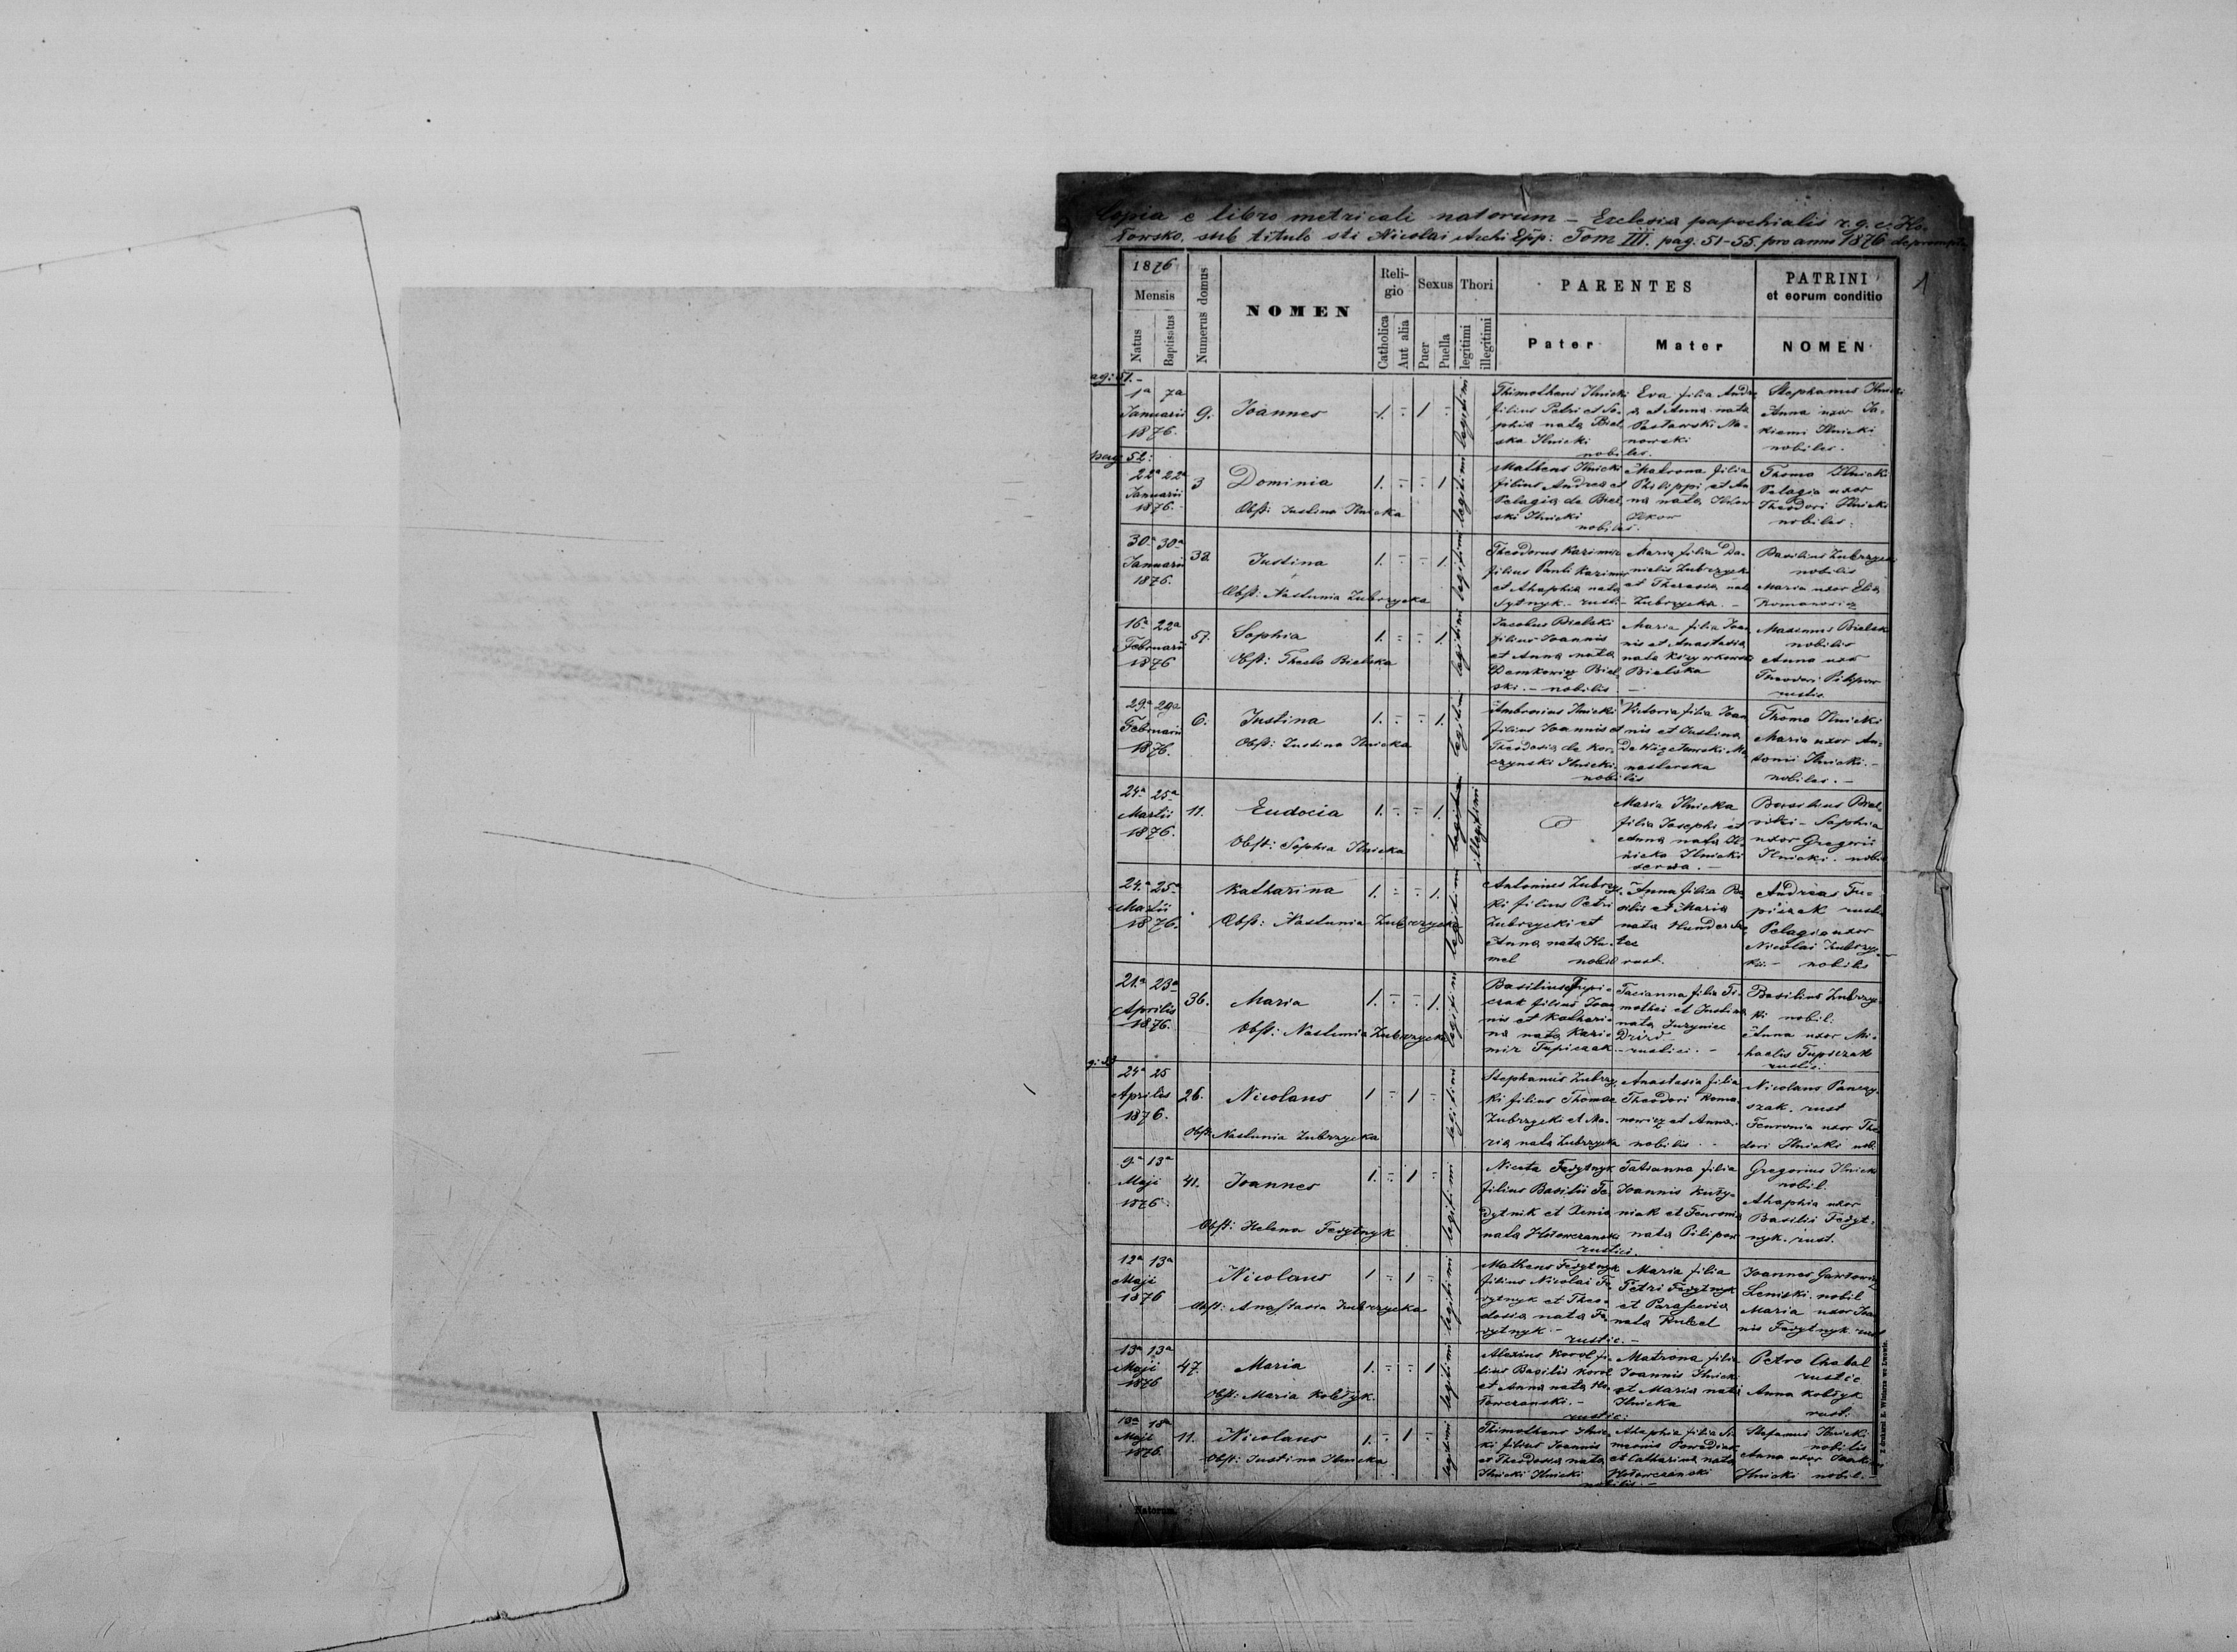 Copia e libro metricali natorum – Ecclesia parochialis r. g. c. Ho-
łowsko. sub titulo sti Nicolai Archi Epp: Tom III. pag. 51-55. pro anno 1876
1
1876
Mensis
Natus
Baptisatus
Numerus domus
NOMEN
Reli-
gio
Catholica
Aut alia
Sexus
Puer
Puella
Thori
legitimi
illegitimi
PARENTES
Pater
Mater
PATRINI
et eorum conditio
NOMEN
1a 7a
Januarii
1876.
9.
Joannes
1. 1
legitimi
Thimotheus Ilnicki
filius Petri et So-
phia nata Biel
ska Ilnicki
nobiles.
Eva filia Andre
a et Anna nata
Stephanus Ilnicki
Anna uxor Ja-
kiemi Ilnicki
nobiles.
pag 52:
22a 22a
Januarii
1876.
3
Dominia
Obst: Justina Ilnicka
1. 1
legitimi
Matheus Ilnicki
filius Andrea et
Pelagia de Biel
ski Ilnicki
nobiles.
Matrona filia
Philippi et An
na nata
Thoma Ilnicki
Pelagia uxor
Theodori Ilnicki
nobiles.
30a 30a
Januarii
1876.
38
Justina
Obst: Nastunia Zubrzycka
1. 1.
legitimi
Theodorus Kazimir
filius Pauli Kazimir
et Ahaphia nata
Sytnyk - rusti-
Maria filia Da-
nielis Zubrzycki
et Theresia nata
Zubrzycka. -
Basilius Zubrzycki
nobilis
Maria uxor Elia
Romanowicz
16a 22a
Februarii
1876
57.
Sophia
Obst: Thecla Bielska
1. 1.
legitimi
Jacobus Bielski
filius Joannis
et Anna nata
Demkowicz Biel
ski. - nobilis -
Maria filia Joan
nis et Anastasia
nata
Bielska
Maximus Bielski
nobilis
Anna uxor
Theodori Pilipow
rustic.
29a 29a
Februarii
1876.
6.
Justina
Obst: Justina Ilnicka
1. 1.
legitimi
Ambrosius Ilnicki
filius Joannis et
Theodosia de Kor-
czynski Ilnicki.
nobiles
Victoria filia Joan
nis et Justina
Thoma Ilnicki
Maria uxor An-
tonii Ilnicki. -
nobiles. -
24a 25a
Martii
1876.
11.
Eudocia
Obst: Sophia Ilnicka
1. 1.
illegitimi
Maria Ilnicka
filia Josephi et
Anna nata Il-
nicka Ilnicki
serva. -
Basilius Biel-
Sophia
uxor Gregorii
Ilnicki. nobil
24a 25a
Martii
1876.
Katharina
Obst: Nastunia Zubrzycka
1. 1.
legitimi
Antonius Zubrzy-
ki filius Petri
Zubrzycki et
Anna nata Hu-
mel nobil
Anna filia Ba
silii et Maria
nata
rust.
Andreas Tu-
piczak rust.
Pelagia uxor
Nicolai Zubrzy-
ki. - nobilis
21a 23a
Aprilis
1876.
36.
Maria
Obst: Nastunia Zubrzycka
1. 1.
legitimi
Basilius Tupi-
czak filius Joan
nis et Kathari-
na nata Kazi-
mir Tupiczak
Tacianna filia Ti-
mothei et Justina
nata
- rustici. -
Basilius Zubrzy-
ki nobil.
Anna uxor Mi-
chaelis Tupiczak
rustic.
24a 25
Aprilis
1876.
26.
Nicolaus
Obst: Nastunia Zubrzycka
1 1
legitimi
Stephanus Zubrzy-
ki filius Thomae
Zubrzycki et Ma-
ria nata Zubrzycka
Anastasia filia
Theodori Roma-
nowicz et Anna.
nobilis. -
Nicolaus
rust
Fenronia uxor Theo
dori Ilnicki nob.
9a 13a
Maji
1876.
41.
Joannes
Obst: Helena Fedytnyk
1. 1
legitimi
Niceta Fedytnyk
filius Basilii Fe
dytnik et Xenia
nata Hołowczanski
rustici.
Tatianna filia
Joannis
et Fenronia
nata Pilipow
Gregorius Ilnicki
nobil.
Ahaphia uxor
Basilii Fedyt-
nyk. rust.
12a 13a
Maji
1876
Nicolaus
Obst: Anastasia Zubrzycka
1 1
legitimi
Matheus Fedytnyk
filius Nicolai Fe
dytnyk et Theo-
dosia nata Fe
dytnyk -
rustic. -
Maria filia
Petri Fedytnyk
et Parascevia
nata
Joannes
nobil
Maria uxor Joan
nis Fedytnyk rust
13a 13a
Maji
1876
47.
Maria
Obst: Maria Kobłyk.
1. 1
legitimi
Alexius Korol fi-
lius Basilii Korol
et Anna nata Ho-
łowczanski. -
rustic:
Matrona filia
Joannis Ilnicki
et Maria nata
Ilnicka
Petro Chabal
rustic
Anna Kobłyk
rust:
18a 18a
Maji
1876.
11.
Nicolaus
Obst: Justina Ilnicka
1. 1
legitimi
Thimotheus Ilnic-
ki filius Joannis
et Theodosia nata
Ilnicki Ilnicki
nobilis. -
Ahaphia filia Si
meonis
et Catharina nata
Hołowczanski
Stefanus Ilnicki
nobilis
Anna uxor
Ilnicki nobil. -
Z drukarni E. Winiarza we Lwowie.
Natorum.